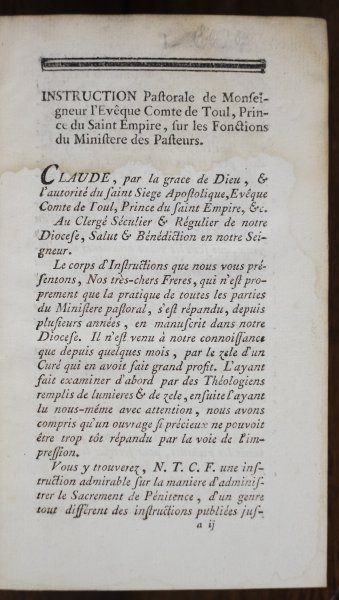 INSTRUCTION Pastorale de Monsei-
gneur l'Evêque Comte de Toul, Prin-
ce du Saint Empire, sur les Fonctions
du Ministere des Pasteurs.
CLAUDE, par la grace de Dieu, &
l'autorité du saint Siege Apostolique, Evêque
Comte de Toul, Prince du saint Empire, &c.
Au Clergé Séculier & Régulier de notre
Diocese, Salut & Bénédiction en notre Sei-
gneur.
Le corps d'Instructions que nous vous pré-
sentons, Nos très-chers Freres, qui n'est pro-
prement que la pratique de toutes les parties
du Ministere pastoral, s'est répandu, depuis
plusieurs années, en manuscrit dans notre
Diocese. Il n'est venu à notre connoissance
que depuis quelques mois, par le zele d'un
Curé qui en avoit fait grand profit. L'ayant
fait examiner d'abord par des Théologiens
remplis de lumieres & de zele, ensuite l'ayant
lu nous-même avec attention, nous avons
compris qu'un ouvrage si précieux ne pouvoit
être trop tôt répandu par la voie de l'im-
pression.
Vous y trouverez, N. T. C. F. une ins-
truction admirable sur la maniere d'adminis-
trer le Sacrement de Pénitence, d'un genre
tout différent des instructions publiées jus-
a ij